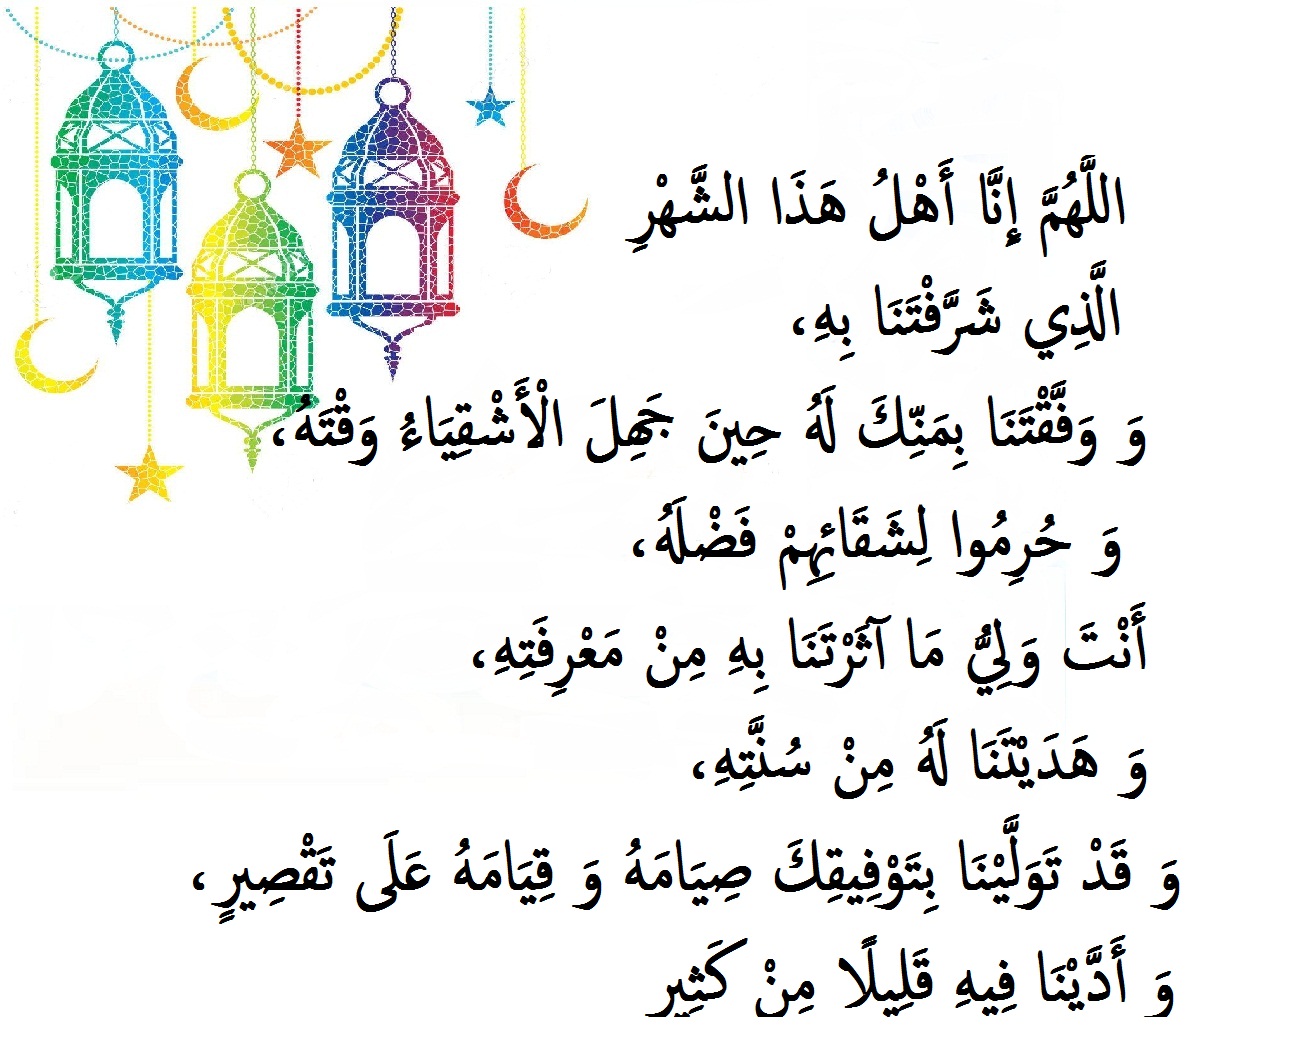 اللَّهُمَّ إِنَّا أَهْلُ هَذَا الشَّهْرِ
الَّذِي شَرَّفْتَنَا بِهِ،
وَ وَفَّقْتَنَا بِمَنِّكَ لَهُ حِينَ جَهِلَ الْأَشْقِيَاءُ وَقْتَهُ،
وَ حُرِمُوا لِشَقَائِهِمْ فَضْلَهُ،
أَنْتَ وَلِيُّ مَا آثَرْتَنَا بِهِ مِنْ مَعْرِفَتِهِ،
وَ هَدَيْتَنَا لَهُ مِنْ سُنَّتِهِ،
وَ قَدْ تَوَلَّيْنَا بِتَوْفِيقِكَ صِيَامَهُ وَ قِيَامَهُ عَلَى تَقْصِيرٍ،
وَ أَدَّيْنَا فِيهِ قَلِيلًا مِنْ كَثِيرٍ